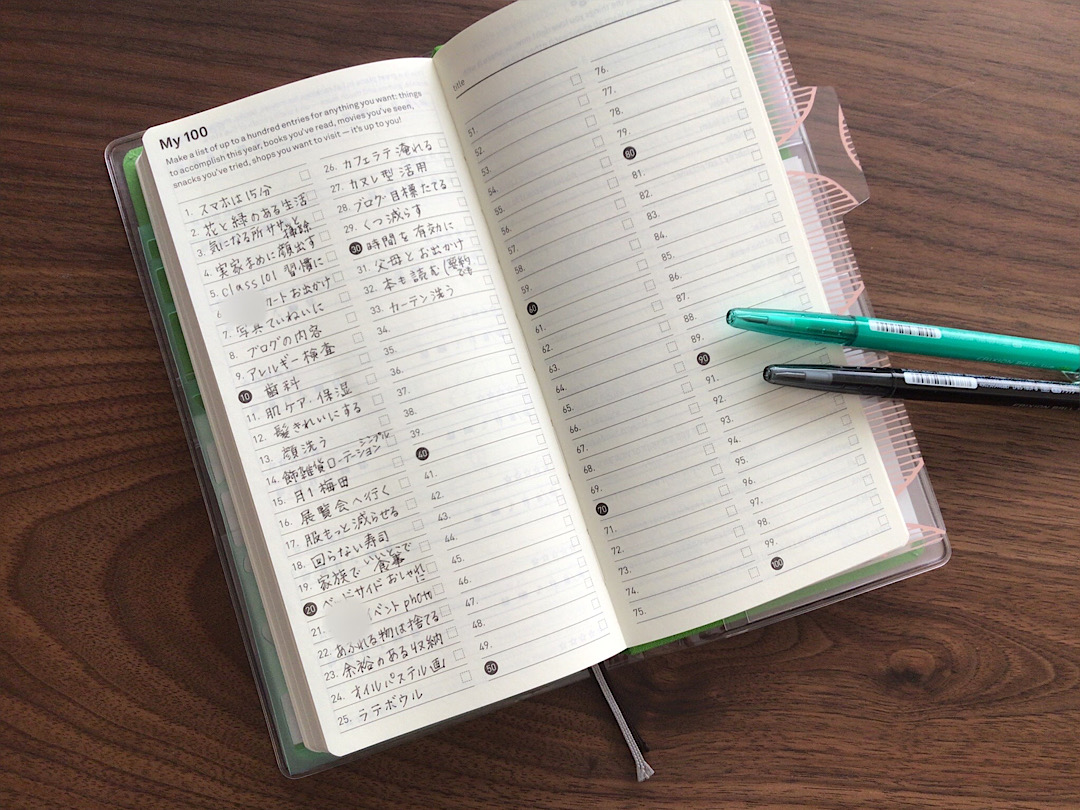 My 100
Make a list of up to a hundred entries for anything you want: things
to accomplish this year, books you've read, movies you've seen,
snacks you've tried, shops you want to visit — it's up to you!
1. スマホは15分
2. 花と緑のある生活
3. 気になる所ササッと掃除
4. 実家まめに顔出す
5. class101 習慣に
6 カートお出かけ
7. 写真ていねいに
8. ブログの内容
9. アレルギー検査
10 歯科
11. 肌ケア・保湿
12. 髪きれいにする
13. 顔洗う
14. 飾雑貨ローテーション シンプル
15. 月1梅田
16. 展覧会へ行く
17. 服もっと減らせる
18. 回らない寿司
19. 家族でいいとこで食事
20 ベッドサイドおしゃれに
21. ベント photo
22. あふれる物は捨てる
23. 余裕のある収納
24. オイルパステル画
25. ラテボウル
26. カフェラテ淹れる
27. カヌレ型活用
28. ブログ目標たてる
29. くつ減らす
30 時間を有効に
31. 父母とお出かけ
32. 本も読む(要約でも
33. カーテン洗う
34.
35.
36.
37.
38.
39.
40
41.
42.
43.
44.
45.
46.
47.
48.
49.
50
title
51.
52.
53.
54.
55.
56.
57.
58.
59.
60
61.
62.
63.
64.
65.
66.
67.
68.
69.
70
71.
72.
73.
74.
75.
76.
77.
78.
79.
80
81.
82.
83.
84.
85.
86.
87.
88.
89.
90
91.
92.
93.
94.
95.
96.
97.
98.
99.
100